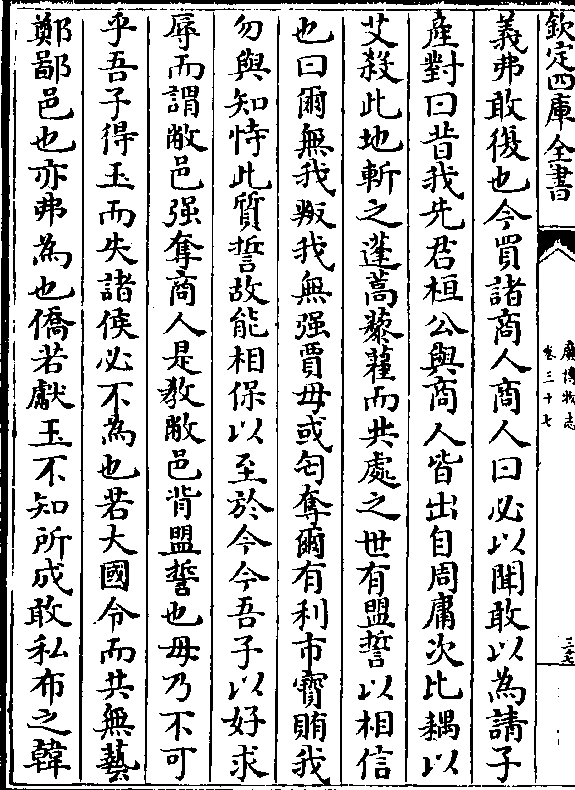 欽定四庫全書
廣博物志
卷三十七
義弗敢復也今買諸商人商人曰必以聞敢以為請子
產對曰昔我先君桓公與商人皆出自周庸次比耦以
艾殺此地斬之蓬蒿藜藋而共處之世有盟誓以相信
也曰爾無我叛我無强賈毋或匄奪爾有利市寶賄我
勿與知恃此質誓故能相保以至於今今吾子以好來
辱而謂敝邑强奪商人是教敝邑背盟誓也毋乃不可
乎吾子得玉而失諸侯必不為也若大國令而共無藝
鄭鄙邑也亦弗為也僑若獻玉不知所成敢私布之韓